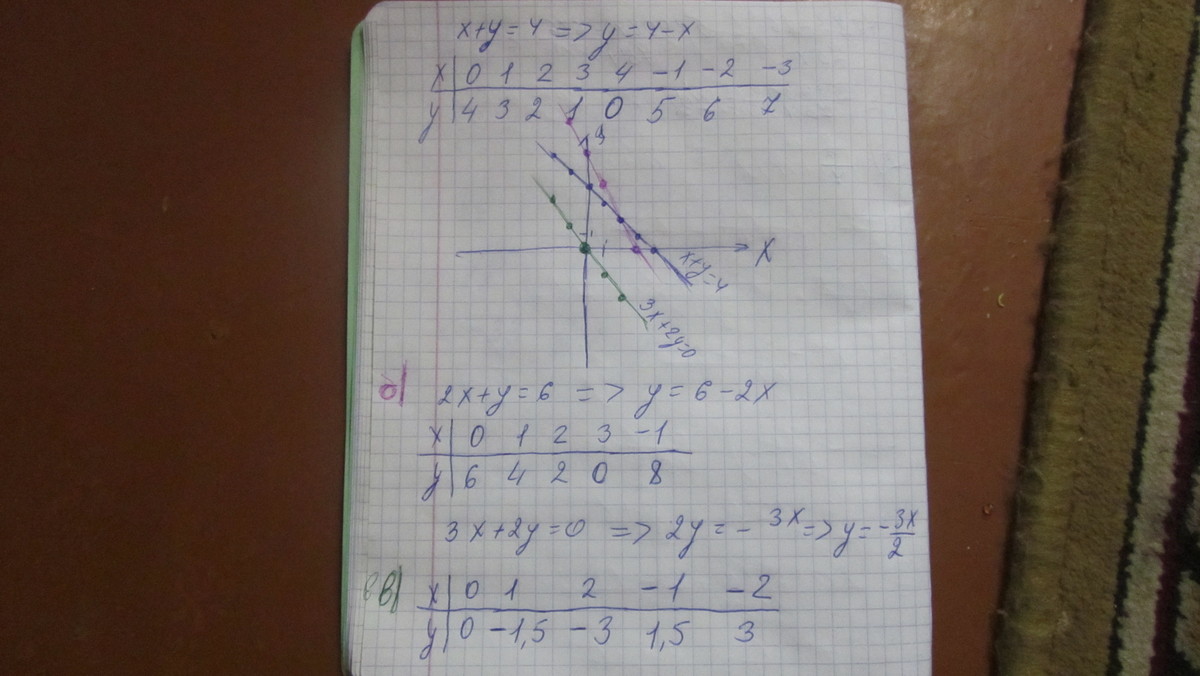 x+y=4 => y=4-x
x | 0 1 2 3 4 -1 -2 -3
y | 4 3 2 1 0 5 6 7
y
1
1
x
x+y=4
3x+2y=0
б) 2x+y=6 => y=6-2x
x | 0 1 2 3 -1
y | 6 4 2 0 8
3x+2y=0 => 2y=-3x => y=-3x/2
в) x | 0 1 2 -1 -2
y | 0 -1,5 -3 1,5 3